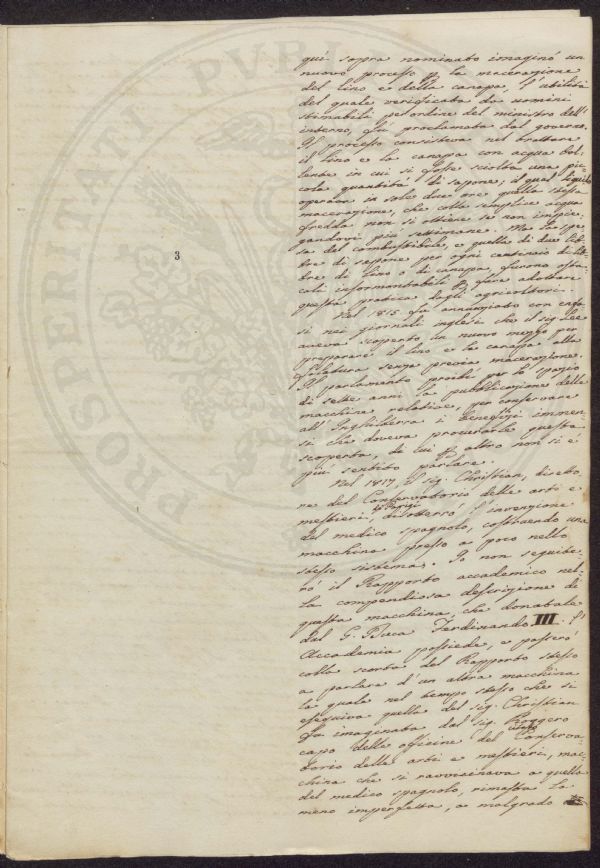 3
qui sopra nominato imaginò un
nuovo processo p. la macerazione
del lino e della canapa, l'utilità
del quale verificata da uomini
stimabili per ordine del ministro dell'
interno, fu proclamata dal governo.
Il processo consisteva nel trattare
il lino e la canapa con acqua bol-
lente in cui si fosse sciolta una pic-
cola quantità di sapone; il qual liquido
operava in sole due ore quella stessa
macerazione, che colla semplice acqua
fredda non si ottiene se non impie-
gandovi più settimane. Ma la spe-
sa del combustibile, e quella di due lib-
bre di sapone per ogni centinaio di lib-
bre di lino o di canapa, furono osta-
coli insormontabili p. fare adottare
questa pratica dagli agricoltori.
Nel 1815 fu annunziato con enfa-
si nei giornali inglesi che il sig. Lee
aveva scoperto un nuovo mezzo per
preparare il lino e la canapa alla
filatura senza previa macerazione.
Il parlamento proibì per lo spazio
di sette anni la pubblicazione delle
macchine relative, per conservare
all'Inghilterra i benefizi immen-
si che doveva procurarle questa
scoperta, di cui p. altro non si è
più sentito parlare.
Nel 1817, il sig. Christian, diretto-
re del Conservatorio delle arti e
mestieri, di Parigi disotterrò l'invenzione
del medico spagnolo, costruendo una
macchina presso a poco nello
stesso sistema. Io non seguite-
rò il Rapporto accademico nel-
la compendiosa descrizione di
questa macchina, che donatale
dal G. Duca Ferdinando III. l'
Accademia possiede, e passerò
colla scorta del Rapporto stesso
a parlare d'un altra macchina
la quale nel tempo stesso che si
eseguiva quella del sig. Christian
fu imaginata dal sig. Roggero
capo delle officine del Conserva-
torio delle arti e mestieri, mac-
china che si ravvicinava a quella
del medico spagnolo, rimasta la
meno imperfetta, a malgrado